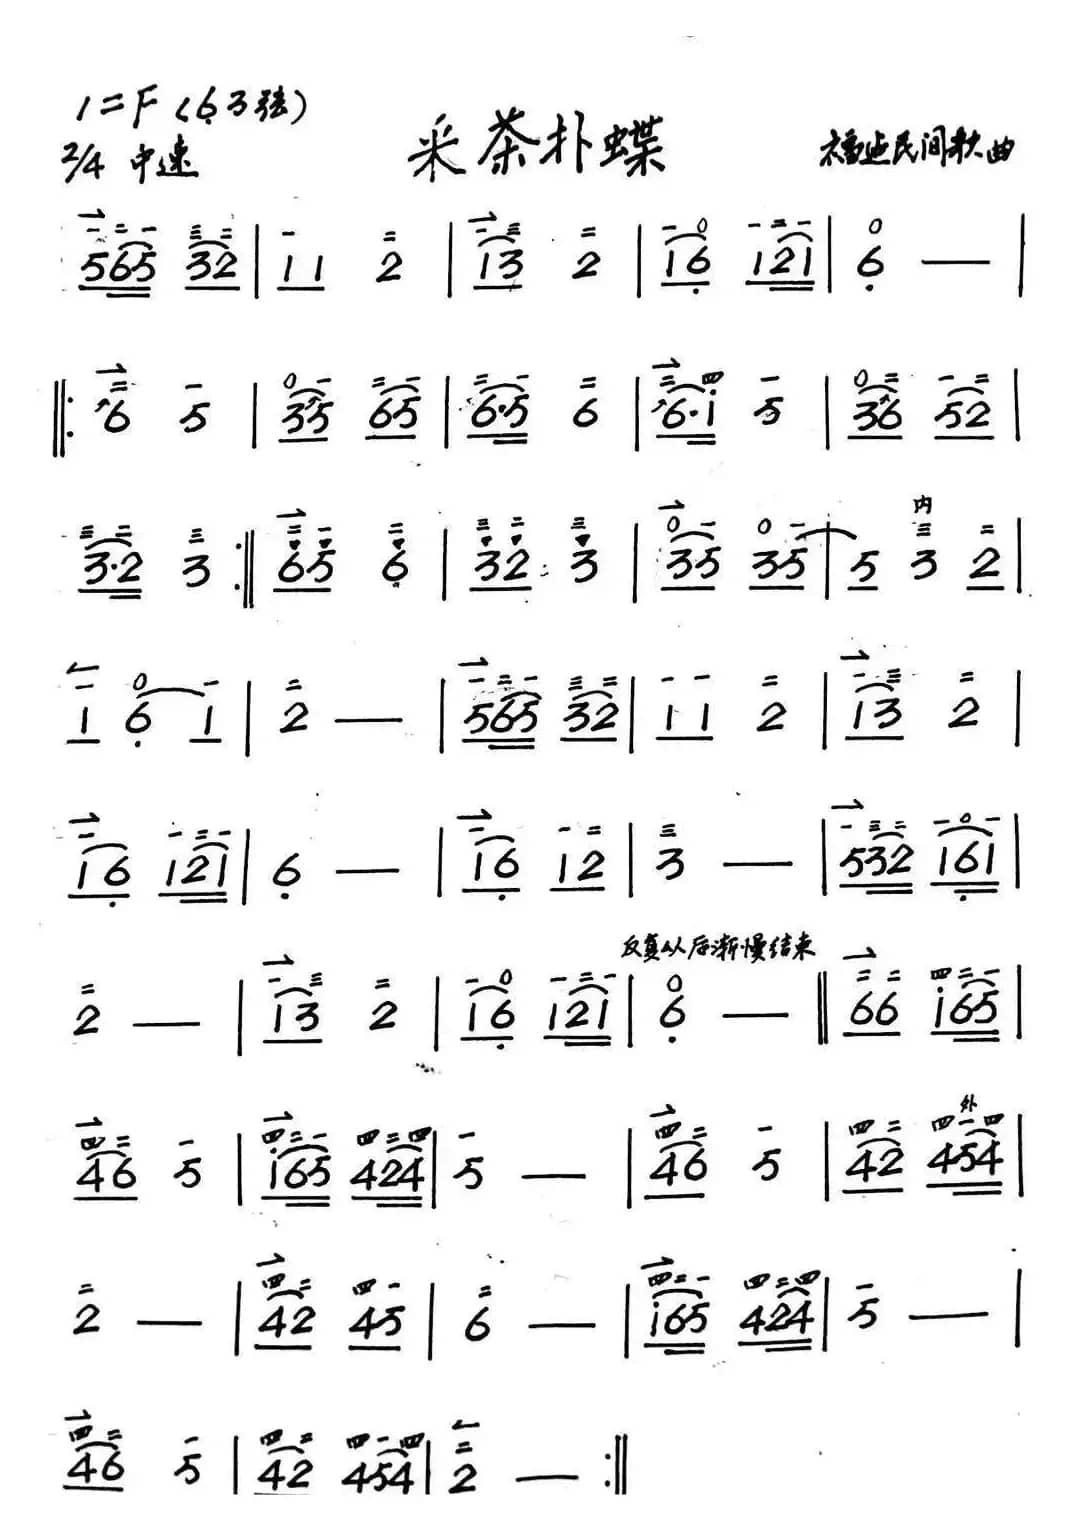 1=F(6̣3弦)
2/4 中速
采茶扑蝶
福建民间歌曲
565 32 | 11 2 | 13 2 | 16̣ 121 | 6̣ — |
‖: 6 5 | 35 65 | 6·5 6 | 6·i 5 | 36 52 |
内
3·2 3 :‖ 65 6 | 32 3 | 35 35 | 5 3 2 |
1 6̣ 1 | 2 — | 565 32 | 11 2 | 13 2 |
16̣ 121 | 6̣ — | 16̣ 12 | 3 — | 532 16̣1 |
反复从后渐慢结束
2 — | 13 2 | 16̣ 121 | 6̣ — ‖ 66 i65 |
外
46 5 | i65 424 | 5 — | 46 5 | 42 454 |
2 — | 42 45 | 6 — | i65 424 | 5 — |
46 5 | 42 454 | 2 — :‖